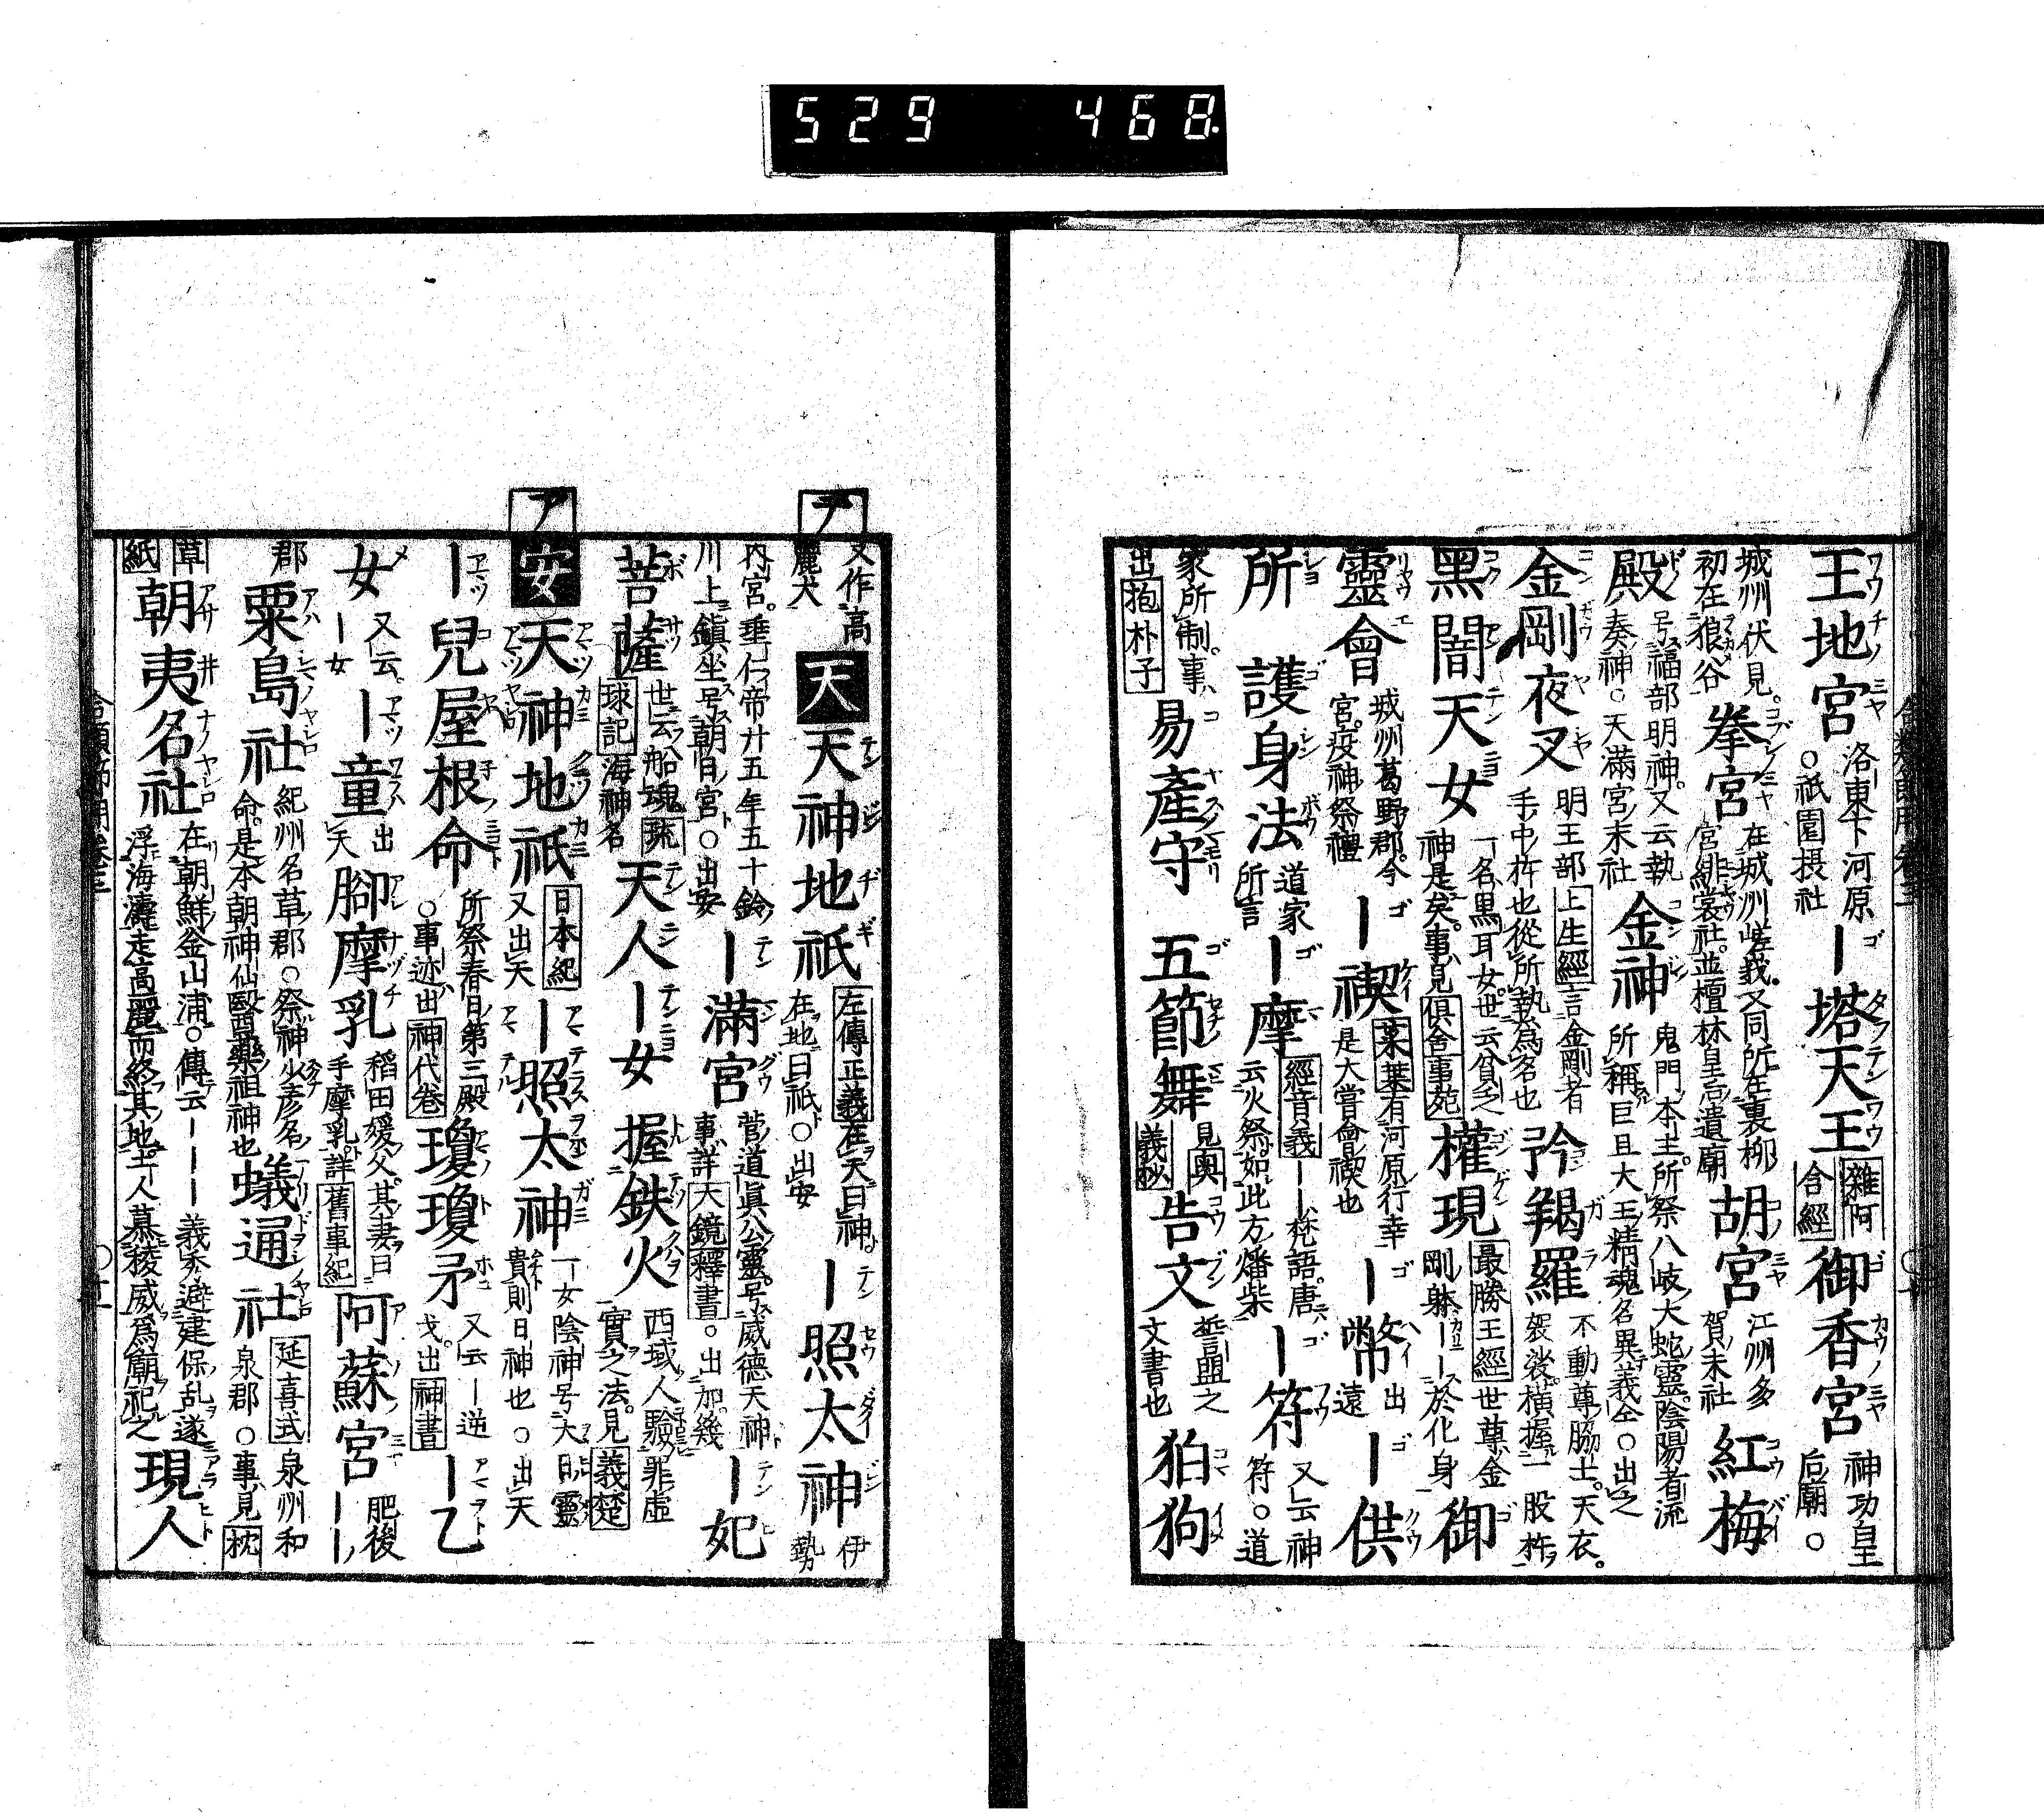 529 468
王地宮 洛東下河原○祇園摂社 ー塔天王 雜阿含經 御香宮 神功皇后廟○
城州伏見。初在狼谷 拳宮 在城州嵯峨。又同所在裏柳宮緋裳社。並檀林皇后遺廟 胡宮 江州多賀末社 紅梅
殿 号福部明神。又云執奏神○天滿宮末社 金神 鬼門本主。所祭八岐大蛇靈。陰陽者流所稱巨旦大王精魂名異義仝○出之
金剛夜叉 明王部 上生經 言金剛者手中杵也從所執為名也 矜羯羅 不動尊脇士。天衣。袈裟。橫握一股杵
黑闇天女 一名黑耳女。世云貧乏神是矣。事見 俱舍事苑 權現 最勝王經 世尊金剛躰ーー於化身 御
靈會 城州葛野郡。今宮。疫神祭禮 ー禊 葉葉 有河原行幸是大嘗會禊也 ー幣 出遠 ー供
所 護身法 道家所言 ー摩 經音義 ーー梵語。唐云火祭。如此方燔柴 ー符 又云神符。○道
家所制。事出 抱朴子 易產守 五節舞 見 奥義抄 告文 誓盟之文書也 狛狗
又作高麗犬 テ 天 天神地祇 左傳正義 在天曰神在地曰祇○出安 ー照太神 伊勢
內宮。垂仁帝廿五年五十鈴川上鎮坐号朝日宮○出安 ー滿宮 菅道眞公靈。号威德天神事詳 大鏡釋書 。○出加幾 ー妃
菩薩 世云船魂 琉球記 海神名 天人 ー女 握鉄火 西域人驗罪虛實之法。見 義楚
ア 安 天神地祇 日本紀 又出天 ー照太神 一女陰神号大日霊貴則日神也。○出天
ー兒屋根命 所祭春日第三殿○事迹出 神代卷 瓊瓊矛 又云ー逆戈。出 神書 ー乙
女 又云ー女 ー童 出天 腳摩乳 稻田媛父。其妻曰手摩乳。詳 舊事紀 阿蘇宮 肥後ーー
郡 粟島社 紀州名草郡○祭神少彥名命。是本朝神仙醫藥祖神也 蟻通社 延喜式 泉州和泉郡○事見 枕
草紙 朝夷名社 在朝鮮釜山浦○傳云ーーー義秀避建保乱遂浮海濤走高麗而終其地土人慕稜威為廟祀之 現人